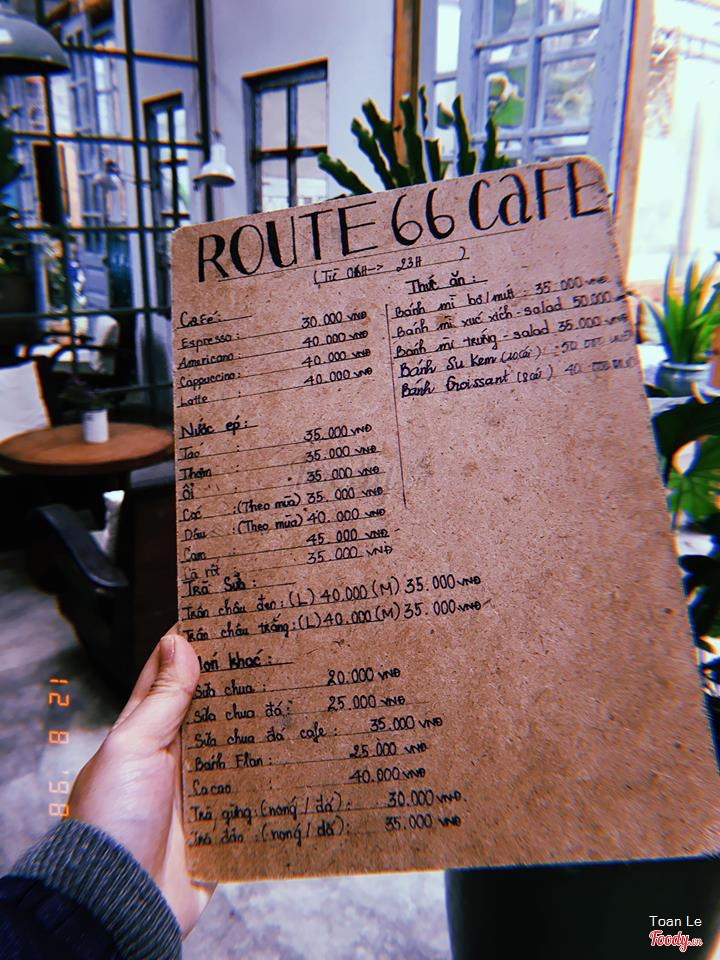 ROUTE 66 CaFE
(Từ 06H -> 23H )
CaFé:
Espresso: 30.000 VNĐ
Americano: 40.000 VNĐ
Cappuccino: 40.000 VNĐ
Latte : 40.000 VNĐ
Nước ép:
Táo : 35.000 VNĐ
Thơm : 35.000 VNĐ
Ổi : 35.000 VNĐ
Cóc :(Theo mùa) 35.000 VNĐ
Dâu :(Theo mùa) 40.000 VNĐ
Cam : 45.000 VNĐ
Cà rốt : 35.000 VNĐ
Trà Sữa:
Trân châu đen: (L) 40.000 (M) 35.000 VNĐ
Trân châu trắng: (L) 40.000 (M) 35.000 VNĐ
Món khác:
Sữa chua : 20.000 VNĐ
Sữa chua đá: 25.000 VNĐ
Sữa chua đá cafe: 35.000 VNĐ
Bánh Flan: 25.000 VNĐ
Cacao : 40.000 VNĐ
Trà gừng: (nóng / đá): 30.000 VNĐ.
Trà đào : (nóng / đá): 35.000 VNĐ
Thức ăn:
Bánh mì bơ/mứt : 35.000 VNĐ
Bánh mì xúc xích - salad 50.000 VNĐ
Bánh mì trứng - salad 35.000 VNĐ
Bánh Su Kem (10cái) : 50.000 VNĐ
Bánh Croissant (8cái) 40.000 VNĐ
12 8 '98
Toan Le
Foody.vn